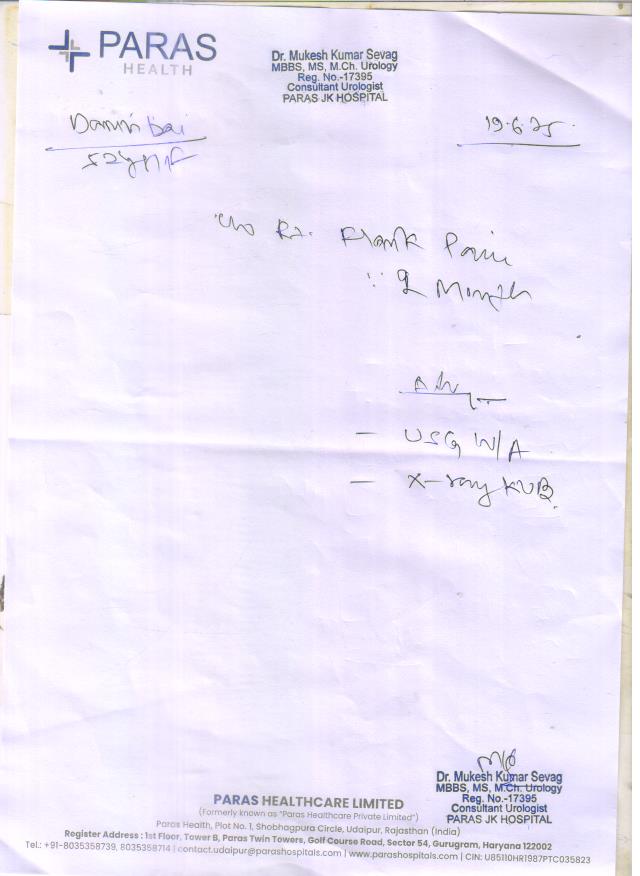 PARAS
HEALTH
Dr. Mukesh Kumar Sevag
MBBS, MS, M.Ch. Urology
Reg. No.-17395
Consultant Urologist
PARAS JK HOSPITAL
bai
19.6.25
c/o Rt. Flank Pain
2 Month
Adv
- USG W/A
- X-ray KUB
Dr. Mukesh Kumar Sevag
MBBS, MS, M.Ch. Urology
Reg. No.-17395
Consultant Urologist
PARAS JK HOSPITAL
PARAS HEALTHCARE LIMITED
(Formerly known as "Paras Healthcare Private Limited")
Paras Health, Plot No. 1, Shobhagpura Circle, Udaipur, Rajasthan (India)
Register Address : 1st Floor, Tower B, Paras Twin Towers, Golf Course Road, Sector 54, Gurugram, Haryana 122002
Tel.: +91-8035358739, 8035358714 | contact.udaipur@parashospitals.com | www.parashospitals.com | CIN: U85110HR1987PTC035823